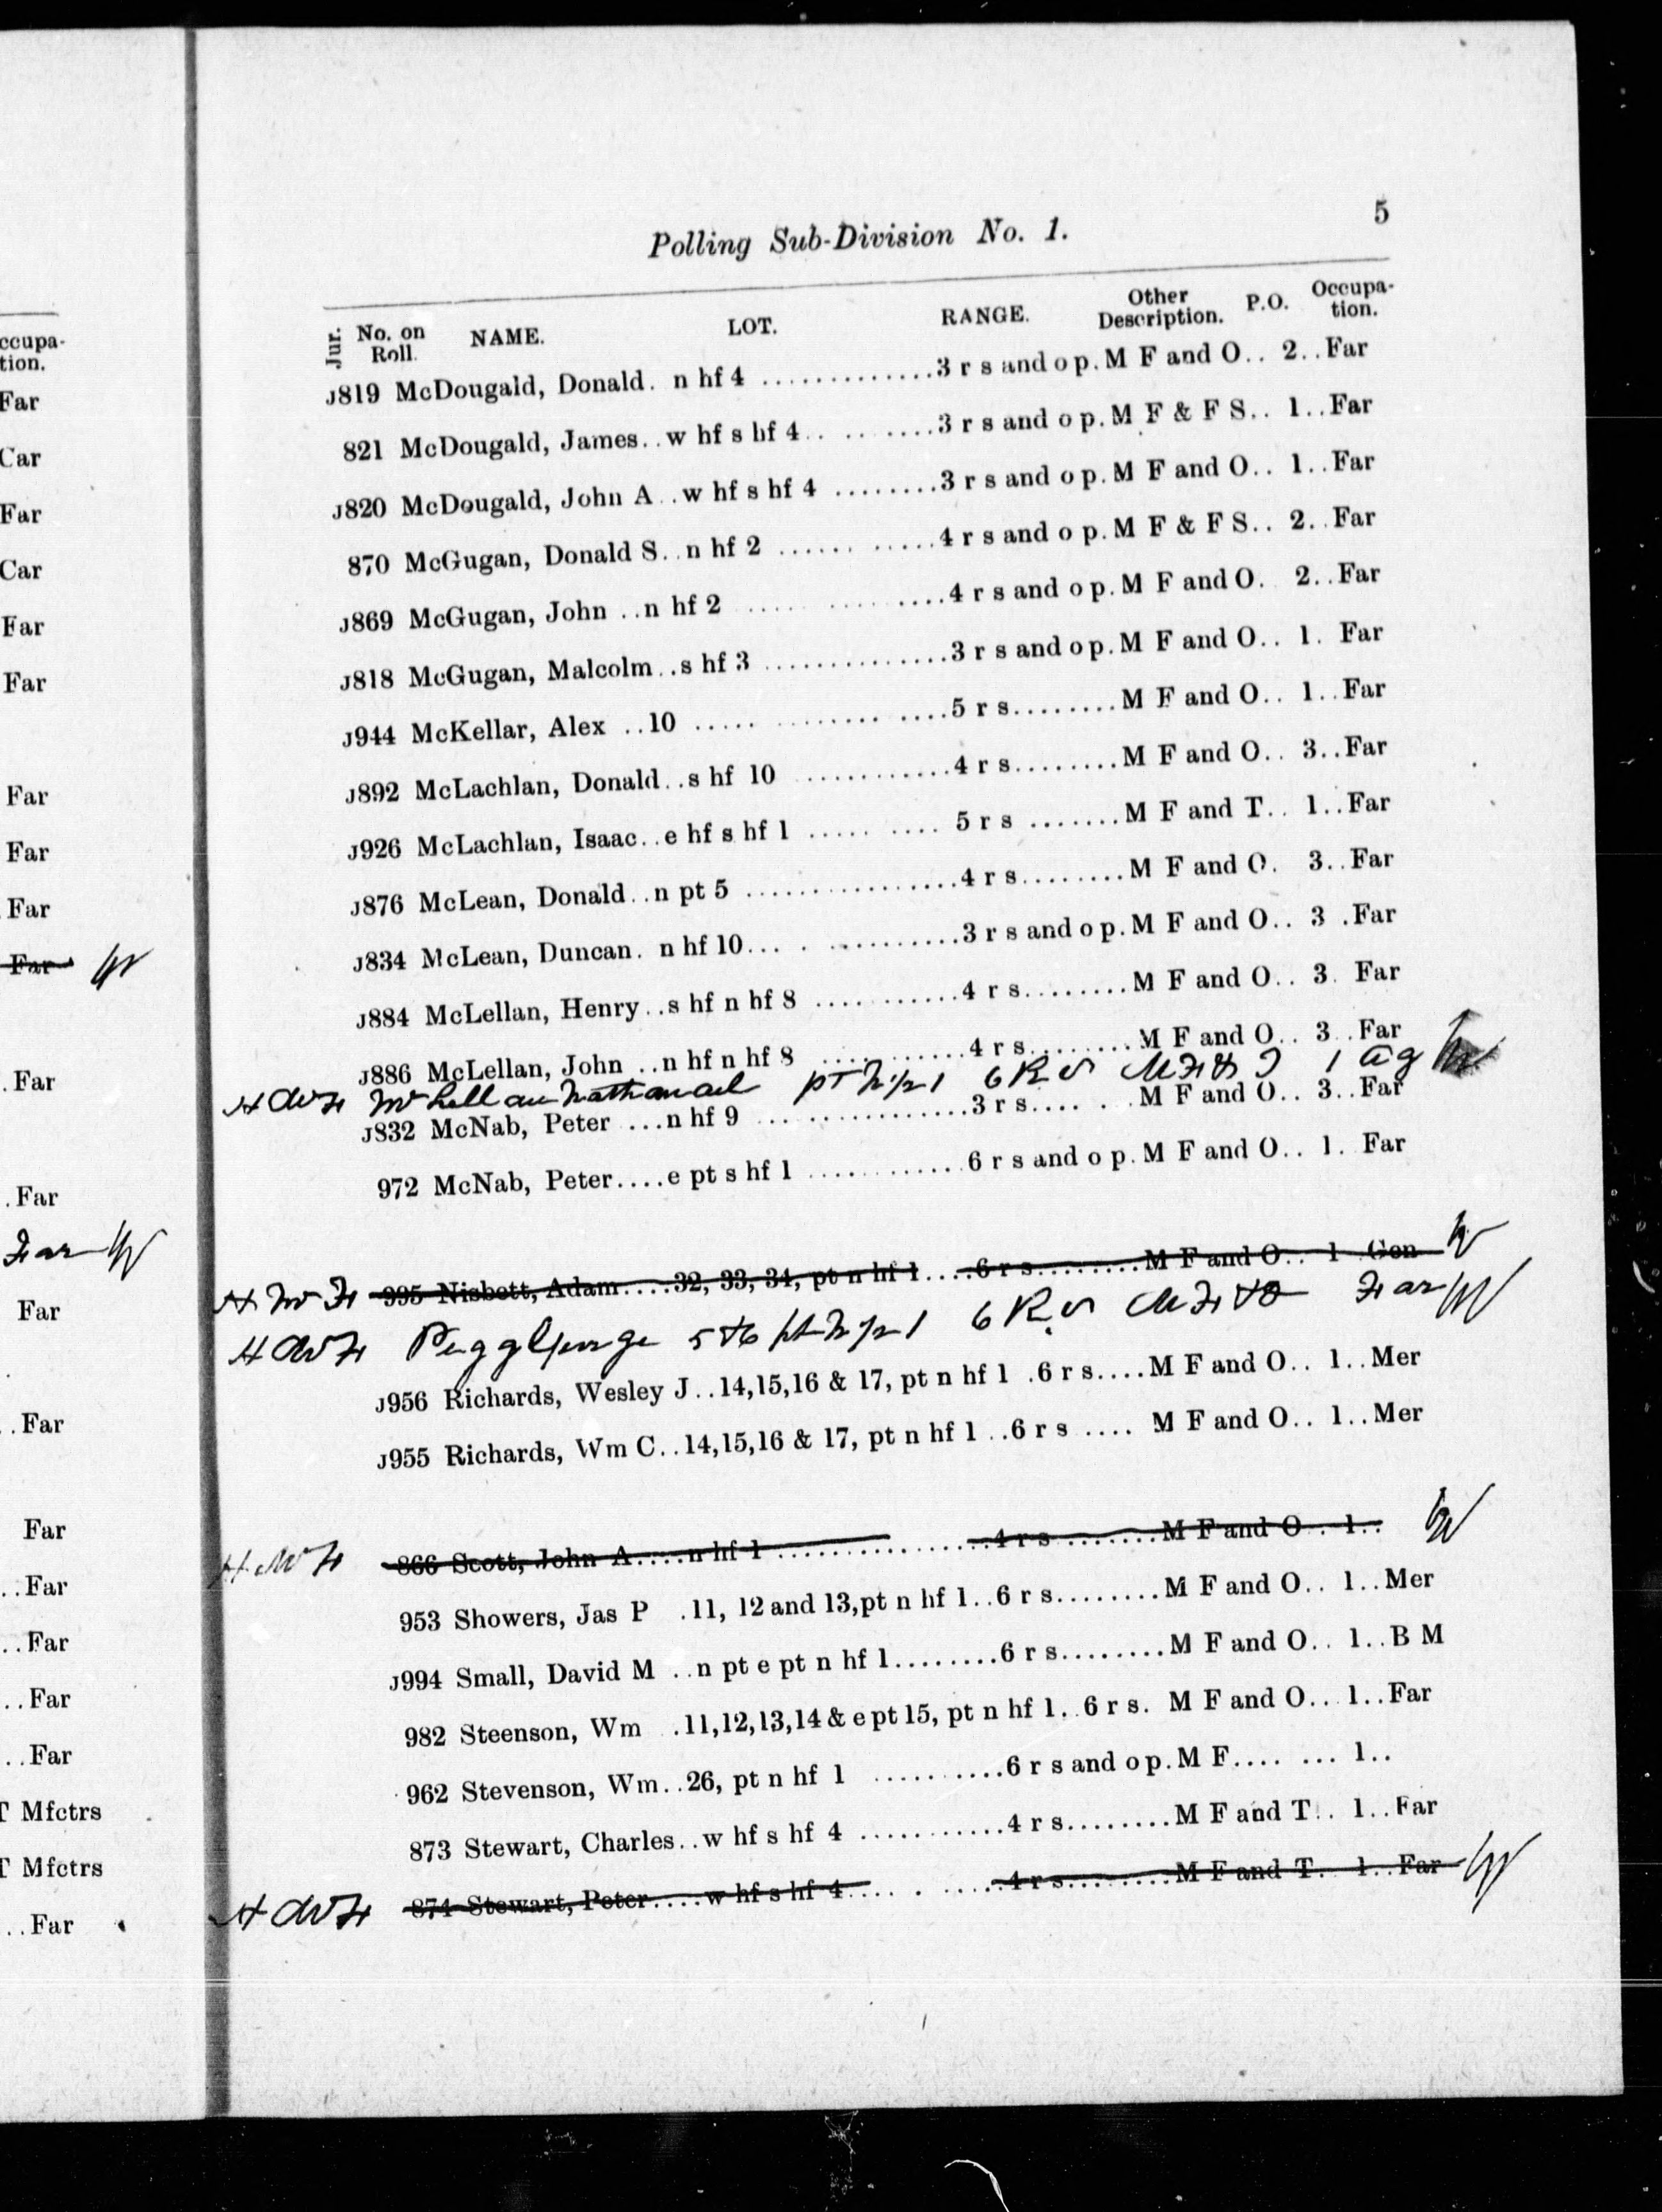 ccupa-
tion.
Far
Car
Far
Car
Far
Far
Far
Far
Far
Far
. Far
. Far
Far
Far
. . Far
Far
. . Far
. . Far
. . Far
. . Far
T Mfctrs
T Mfctrs
. . Far
5
Polling Sub-Division No. 1.
Jur. No. on Roll. NAME. LOT. RANGE. Other Description. P.O. Occupa-tion.
J819 McDougald, Donald. n hf 4 .............3 r s and o p. M F and O.. 2..Far
821 McDougald, James..w hf s hf 4.. .......3 r s and o p. M F & F S.. 1..Far
J820 McDougald, John A..w hf s hf 4 ........3 r s and o p. M F and O.. 1..Far
870 McGugan, Donald S..n hf 2 ...... .....4 r s and o p. M F & F S.. 2..Far
J869 McGugan, John ..n hf 2 .... .........4 r s and o p. M F and O. 2..Far
J818 McGugan, Malcolm..s hf 3 ..............3 r s and o p. M F and O.. 1. Far
J944 McKellar, Alex ..10 ..... ........ ....5 r s........M F and O.. 1..Far
J892 McLachlan, Donald..s hf 10 ............4 r s........M F and O.. 3..Far
J926 McLachlan, Isaac..e hf s hf 1 ..... .... 5 r s .......M F and T.. 1..Far
J876 McLean, Donald..n pt 5 ................4 r s........M F and O. 3..Far
J834 McLean, Duncan. n hf 10... . ..........3 r s and o p. M F and O.. 3 .Far
J884 McLellan, Henry..s hf n hf 8 ...........4 r s........M F and O.. 3. Far
J886 McLellan, John ..n hf n hf 8 ...........4 r s........M F and O.. 3..Far
McLellan Nathanael 6 R S 1 Ag
J832 McNab, Peter ...n hf 9 ... .............3 r s.... . .M F and O.. 3..Far
972 McNab, Peter....e pt s hf 1 ............6 r s and o p. M F and O.. 1. Far
995 Nisbett, Adam....32, 33, 34, pt n hf 1....6 r s........M F and O.. 1 Gen
Pegg George 5 & 6 pt n ½ 1 6 R S Far
J956 Richards, Wesley J..14,15,16 & 17, pt n hf 1 .6 r s....M F and O.. 1..Mer
J955 Richards, Wm C..14,15,16 & 17, pt n hf 1 ..6 r s .... M F and O.. 1..Mer
866 Scott, John A....n hf 1 ................4 r s ........M F and O.. 1..
953 Showers, Jas P .11, 12 and 13, pt n hf 1..6 r s........M F and O.. 1..Mer
J994 Small, David M ..n pt e pt n hf 1........6 r s........M F and O.. 1..B M
982 Steenson, Wm .11,12,13,14 & e pt 15, pt n hf 1..6 r s. M F and O.. 1..Far
962 Stevenson, Wm..26, pt n hf 1 ..........6 r s and o p. M F.... ... 1..
873 Stewart, Charles..w hf s hf 4 ...........4 r s........M F and T.. 1..Far
874 Stewart, Peter....w hf s hf 4.... . .....4 r s........M F and T. 1..Far